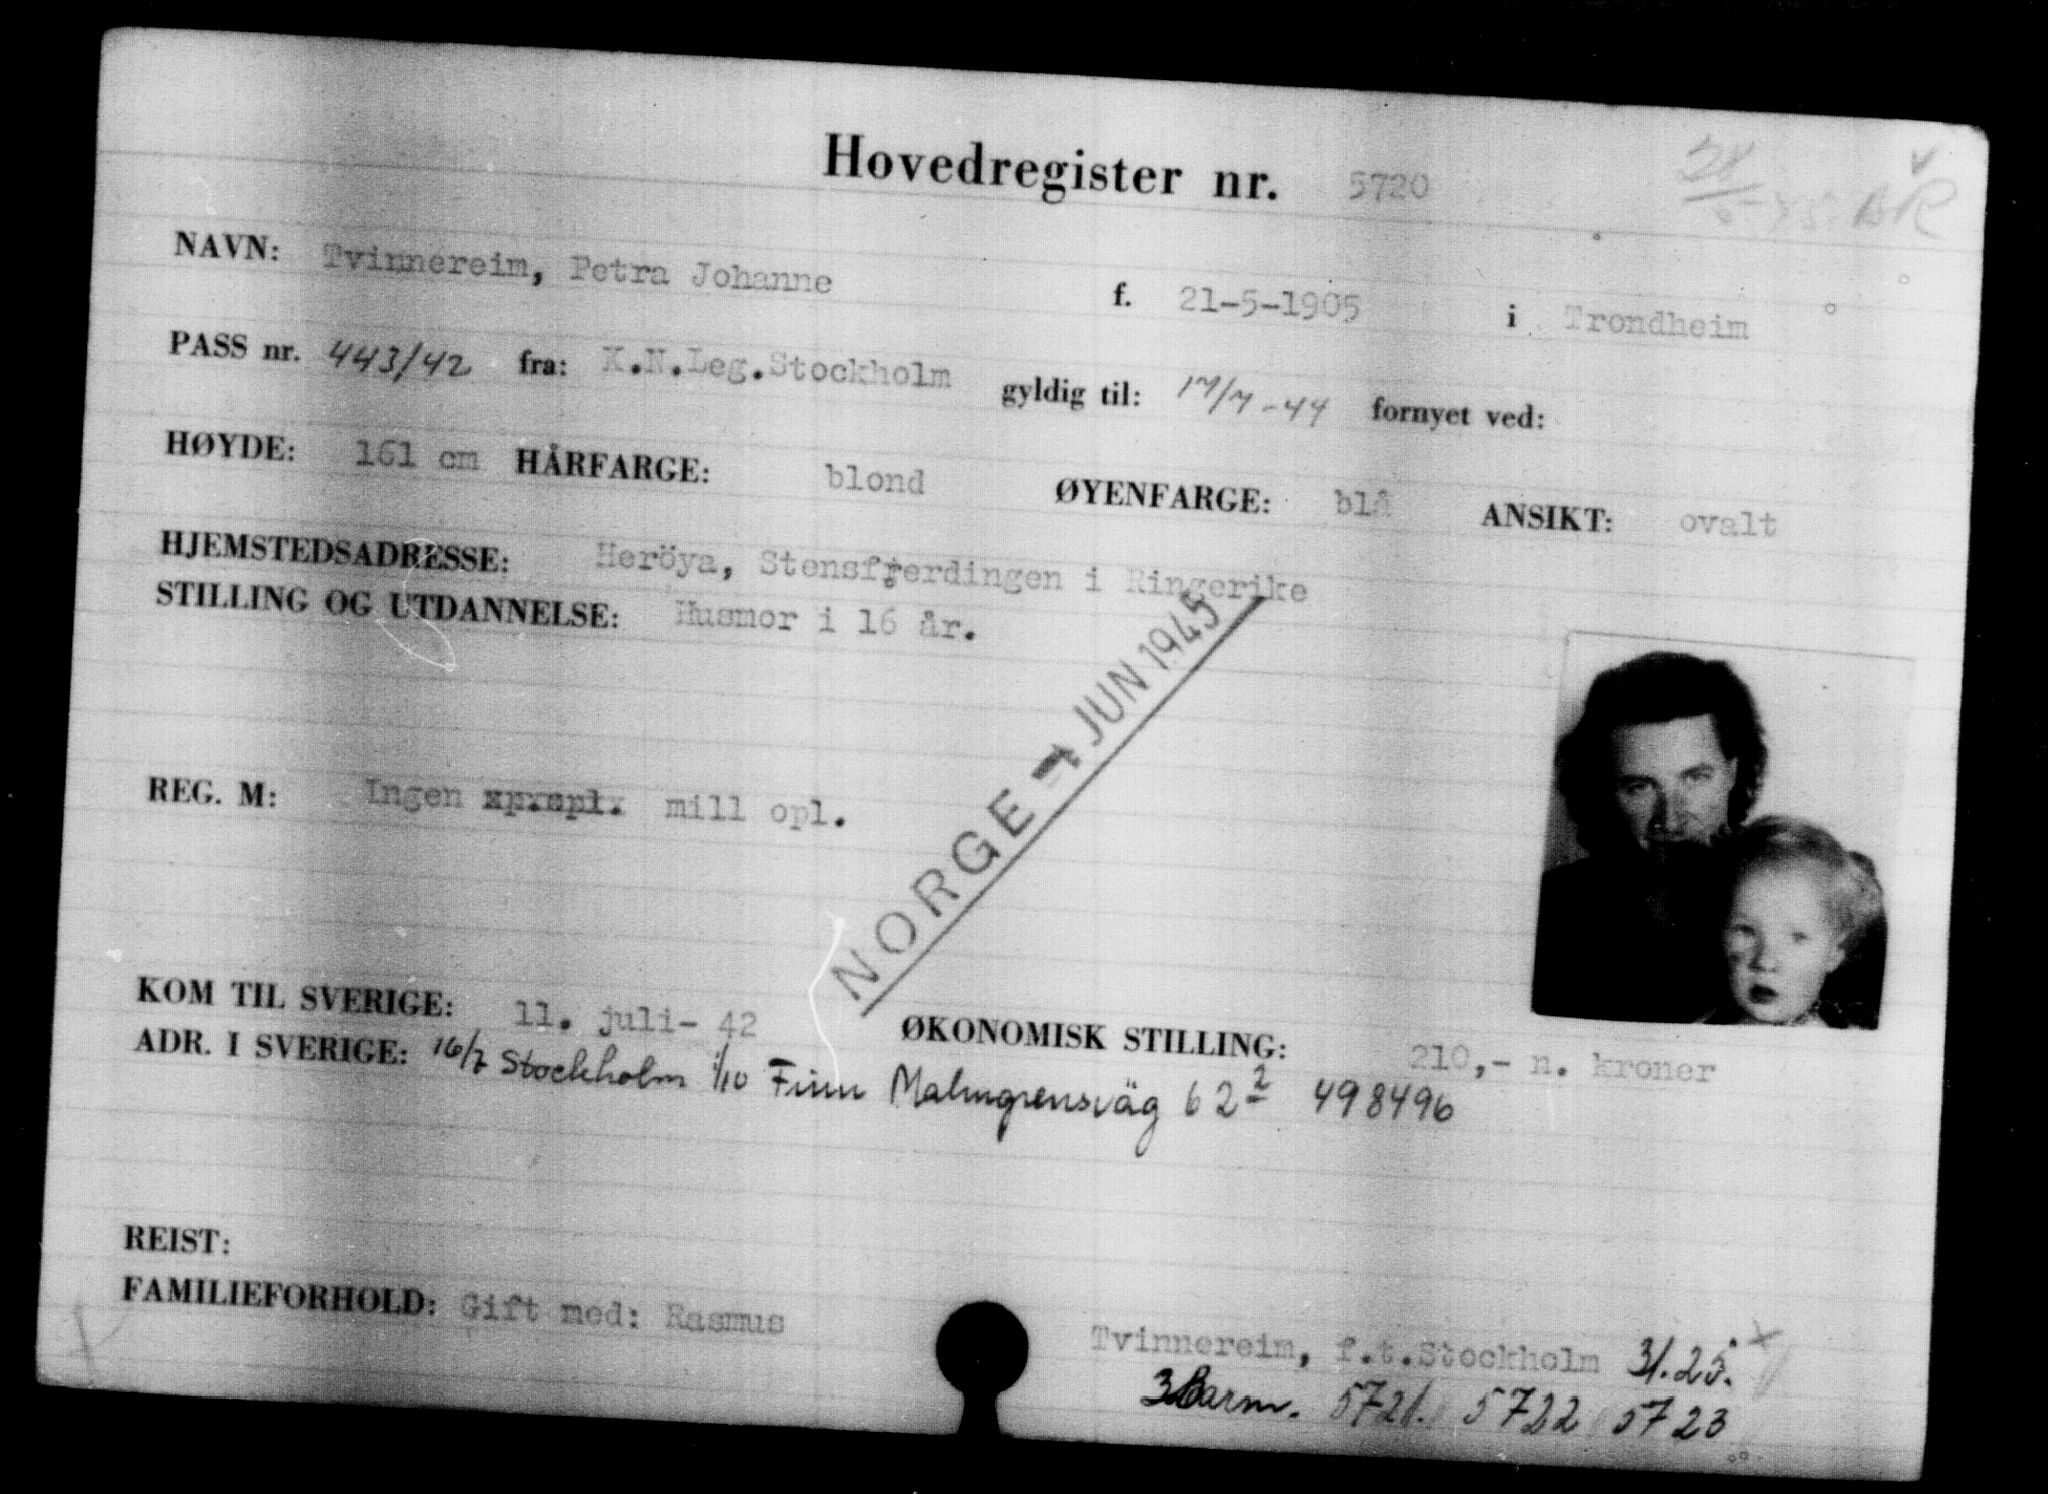 Hovedregister nr. 5720
NAVN: Tvinnereim, Petra Johanne f. 21-5-1905 i Trondheim
PASS nr. 443/42 fra: K.N.Leg.Stockholm gyldig til: 17/7-44 fornyet ved:
HØYDE: 161 cm HÅRFARGE: blond ØYENFARGE: blå ANSIKT: ovalt
HJEMSTEDSADRESSE: Heröya, Stensfjerdingen i Ringerike
STILLING OG UTDANNELSE: Husmor i 16 år.
NORGE JUN 1945
REG. M: Ingen mill opl.
KOM TIL SVERIGE: 11. juli- 42 ØKONOMISK STILLING: 210,- n. kroner
ADR. I SVERIGE: 16/7 Stockholm 1/10 Finn Malmgrensväg 62 2 498496
REIST:
FAMILIEFORHOLD: Gift med: Rasmus Tvinnereim, f.t.Stockholm 3125.
3 Barn. 5721. 5722 5723